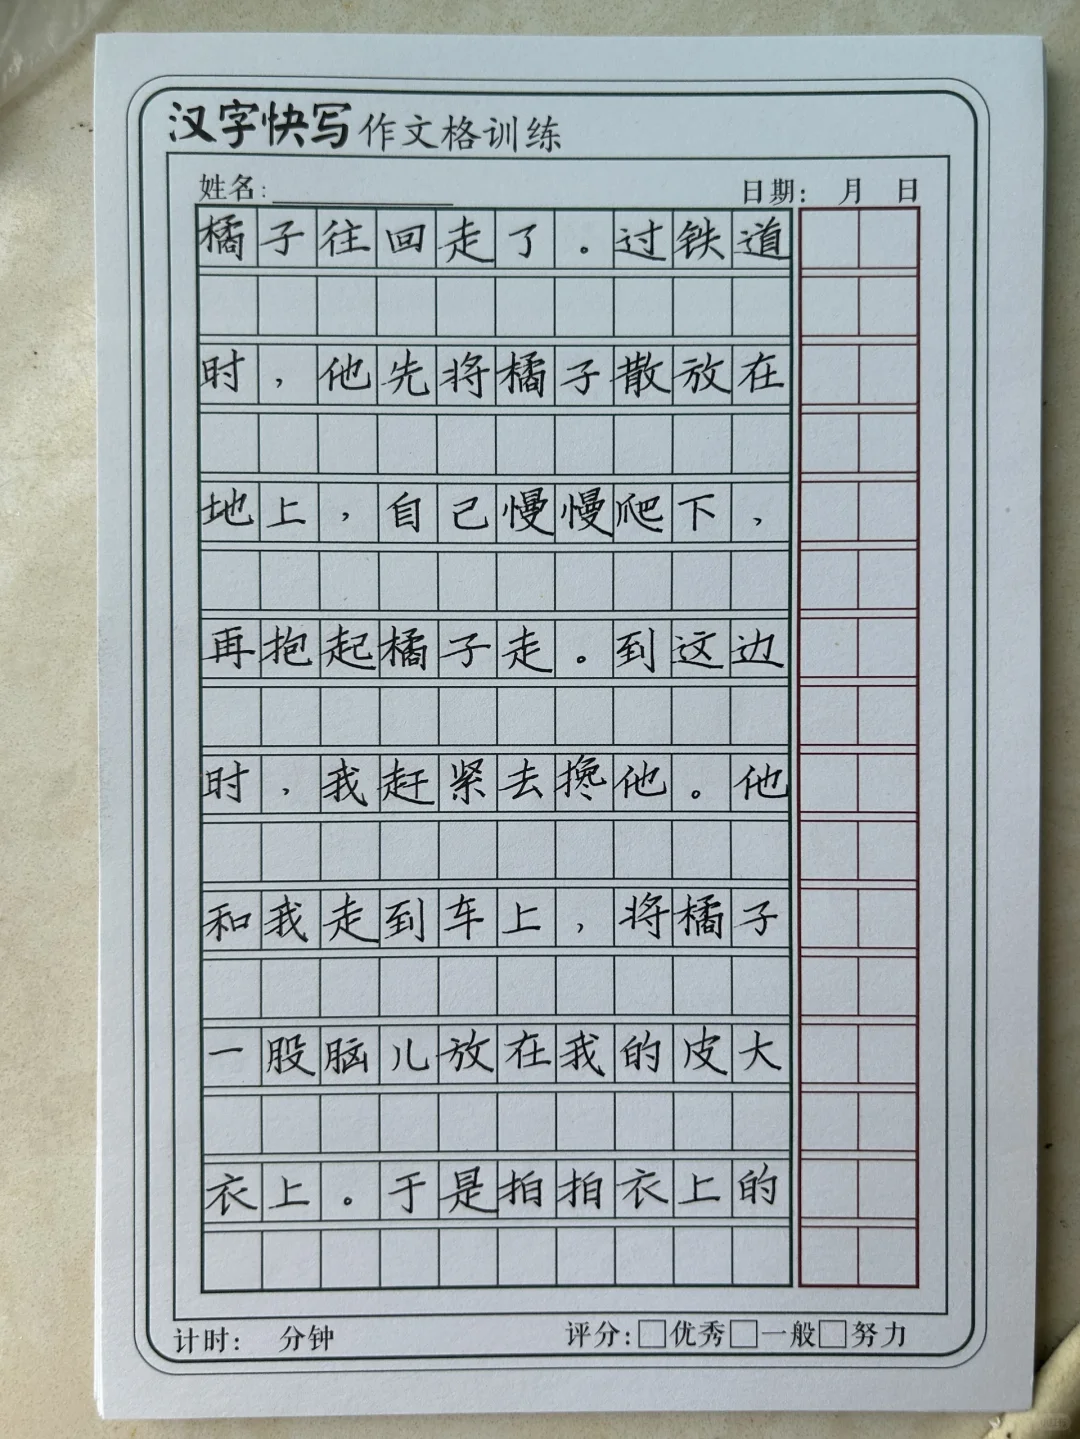 汉字快写作文格训练
姓名: 日期: 月 日
橘子往回走了。过铁道
时,他先将橘子散放在
地上,自己慢慢爬下,
再抱起橘子走。到这边
时,我赶紧去搀他。他
和我走到车上,将橘子
一股脑儿放在我的皮大
衣上。于是拍拍衣上的
计时: 分钟 评分:□优秀□一般□努力